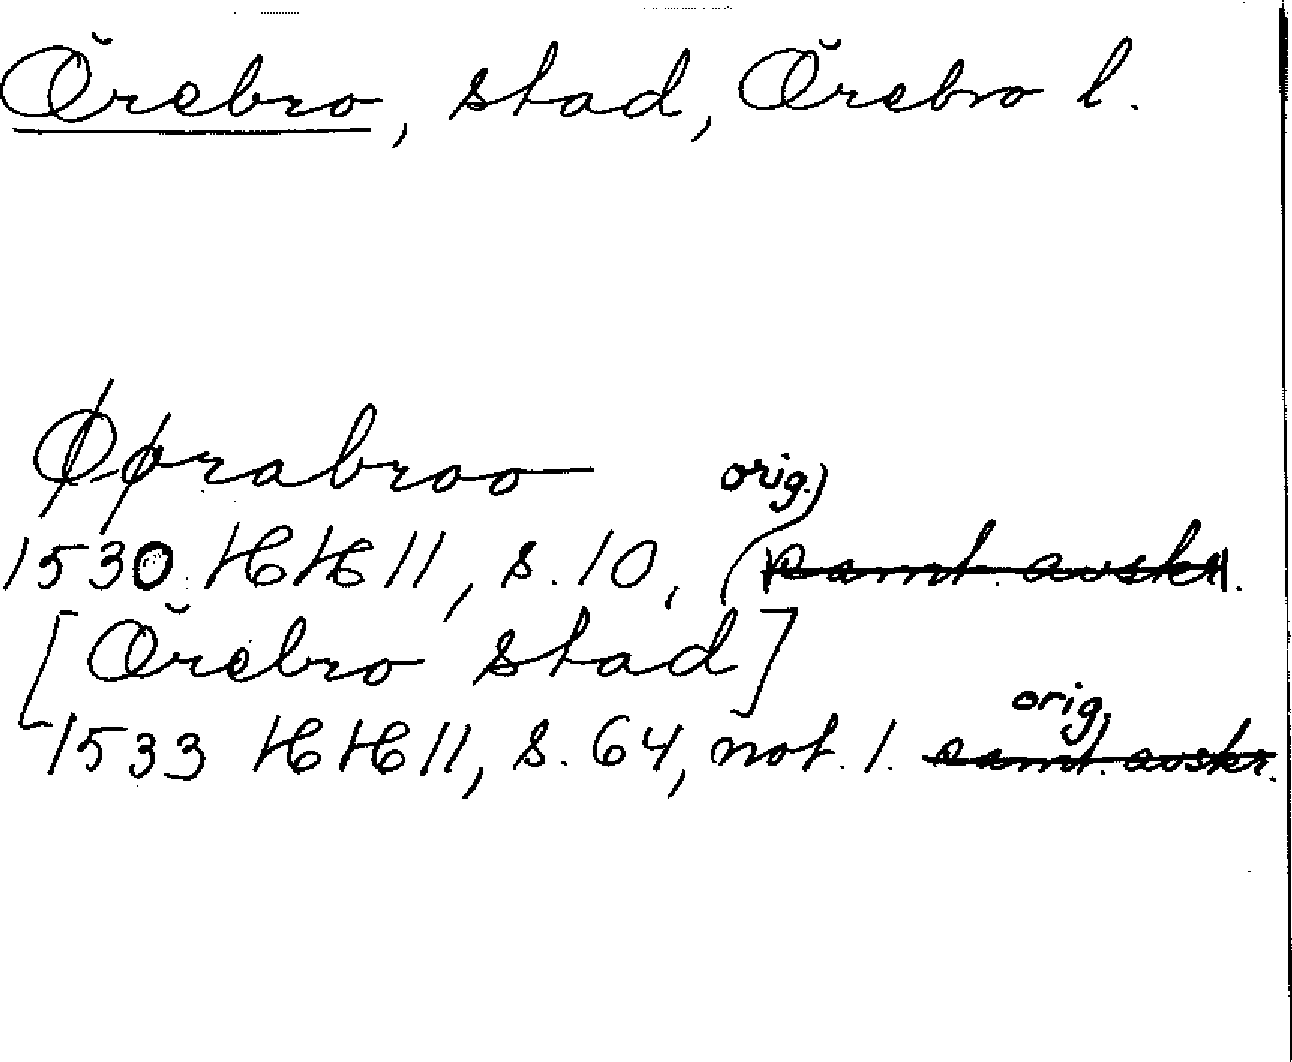 Örebro, stad, Örebro l.
Øørabroo
orig.)
1530 HH 11, s. 10, (samt. avskr.
[Örebro stad]
orig.
1533 HH 11, s. 64, not. 1. samt. avskr.